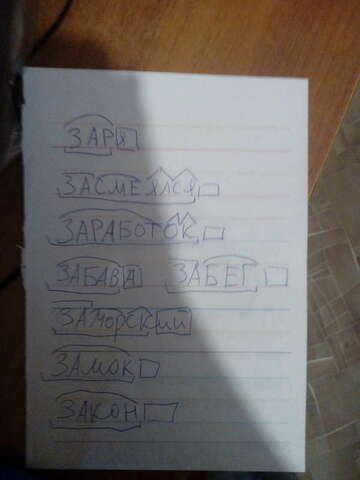 ЗАРЯ
ЗАСМЕЯЛСЯ
ЗАРАБОТОК
ЗАБАВА ЗАБЕГ
ЗАМОРСКИЙ
ЗАМОК
ЗАКОН